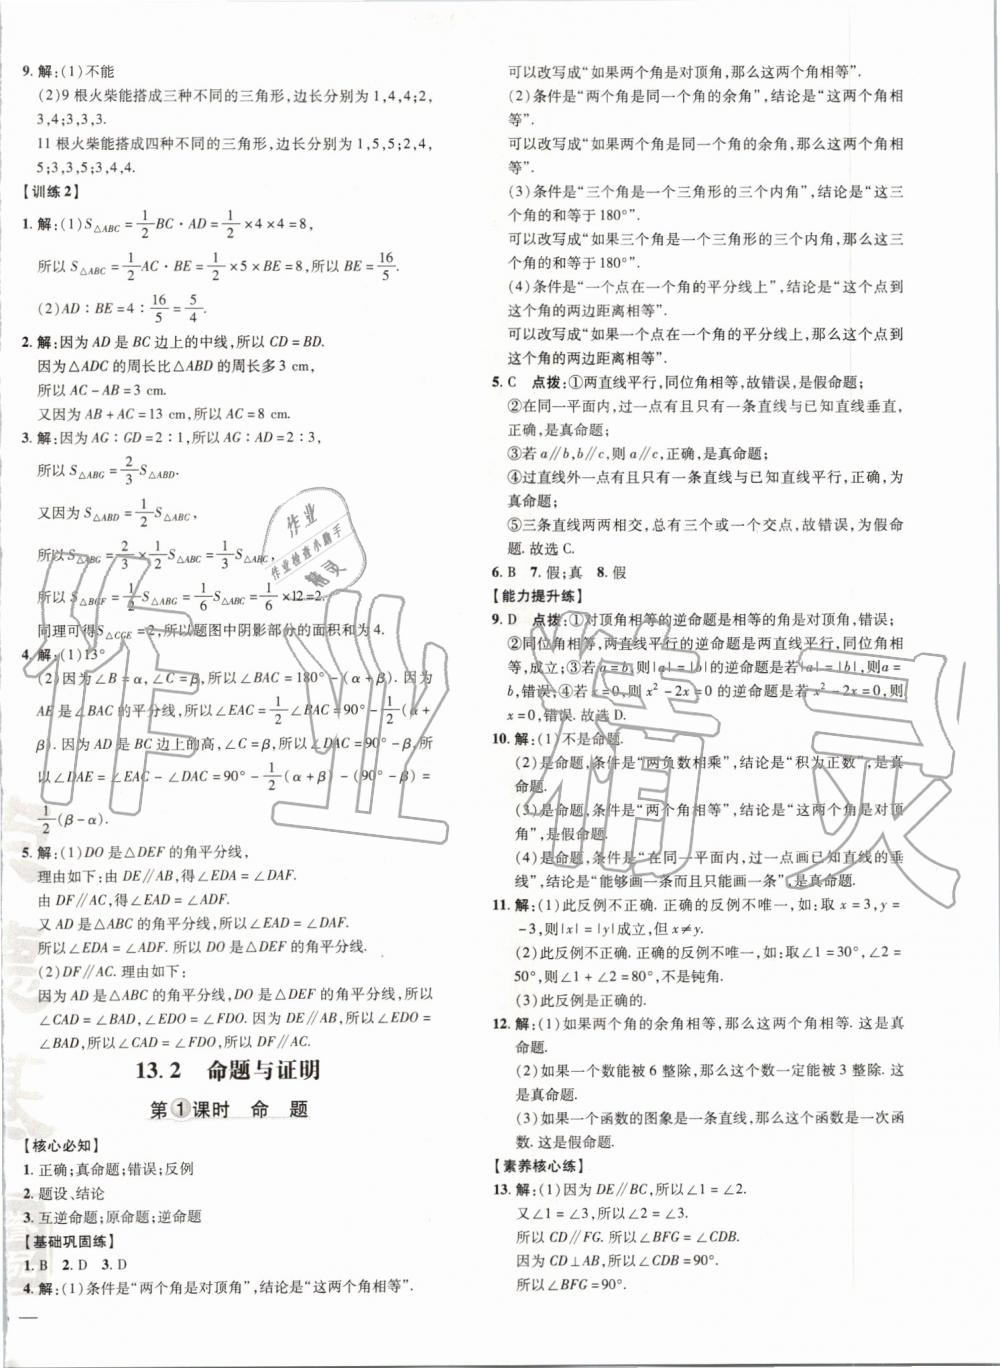 9. 解:(1)不能
(2)9 根火柴能搭成三种不同的三角形,边长分别为 1,4,4;2,
3,4;3,3,3.
11 根火柴能搭成四种不同的三角形,边长分别为 1,5,5;2,4,
5;3,3,5;3,4,4.
【训练2】
1. 解:(1)S△ABC=1/2BC·AD=1/2×4×4=8,
所以 S△ABC=1/2AC·BE=1/2×5×BE=8,所以 BE=16/5.
(2)AD∶BE=4∶16/5=5/4.
2. 解:因为 AD 是 BC 边上的中线,所以 CD=BD.
因为△ADC 的周长比△ABD 的周长多 3 cm,
所以 AC-AB=3 cm.
又因为 AB+AC=13 cm,所以 AC=8 cm.
3. 解:因为 AG∶GD=2∶1,所以 AG∶AD=2∶3,
所以 S△ABG=2/3S△ABD.
又因为 S△ABD=1/2S△ABC,
所以 S△ABG=2/3×1/2S△ABC=1/3S△ABC,
所以 S△BGF=1/2S△ABG=1/6S△ABC=1/6×12=2.
同理可得S△CGE=2,所以题图中阴影部分的面积和为 4.
4. 解:(1)13°
(2)因为∠B=α,∠C=β,所以∠BAC=180°-(α+β). 因为
AE 是∠BAC 的平分线,所以∠EAC=1/2∠BAC=90°-1/2(α+
β). 因为 AD 是 BC 边上的高,∠C=β,所以∠DAC=90°-β,所
以∠DAE=∠EAC-∠DAC=90°-1/2(α+β)-(90°-β)=
1/2(β-α).
5. 解:(1)DO 是△DEF 的角平分线,
理由如下:由 DE∥AB,得∠EDA=∠DAF.
由 DF∥AC,得∠EAD=∠ADF.
又 AD 是△ABC 的角平分线,所以∠EAD=∠DAF.
所以∠EDA=∠ADF. 所以 DO 是△DEF 的角平分线.
(2)DF∥AC. 理由如下:
因为 AD 是△ABC 的角平分线,DO 是△DEF 的角平分线,所以
∠CAD=∠BAD,∠EDO=∠FDO. 因为 DE∥AB,所以∠EDO=
∠BAD,所以∠CAD=∠FDO,所以 DF∥AC.
13.2 命题与证明
第1课时 命 题
【核心必知】
1. 正确;真命题;错误;反例
2. 题设、结论
3. 互逆命题;原命题;逆命题
【基础巩固练】
1. B 2. D 3. D
4. 解:(1)条件是“两个角是对顶角”,结论是“这两个角相等”.
可以改写成“如果两个角是对顶角,那么这两个角相等”.
(2)条件是“两个角是同一个角的余角”,结论是“这两个角相
等”.
可以改写成“如果两个角是同一个角的余角,那么这两个角
相等”.
(3)条件是“三个角是一个三角形的三个内角”,结论是“这三
个角的和等于 180°”.
可以改写成“如果三个角是一个三角形的三个内角,那么这
三个角的和等于 180°”.
(4)条件是“一个点在一个角的平分线上”,结论是“这个点到
这个角的两边距离相等”.
可以改写成“如果一个点在一个角的平分线上,那么这个点到
这个角的两边距离相等”.
5. C 点拨:①两直线平行,同位角相等,故错误,是假命题;
②在同一平面内,过一点有且只有一条直线与已知直线垂直,
正确,是真命题;
③若 a∥b,b∥c,则 a∥c,正确,是真命题;
④过直线外一点有且只有一条直线与已知直线平行,正确,为
真命题;
⑤三条直线两两相交,总有三个或一个交点,故错误,为假命
题. 故选 C.
6. B 7. 假;真 8. 假
【能力提升练】
9. D 点拨:①对顶角相等的逆命题是相等的角是对顶角,错误;
②同位角相等,两直线平行的逆命题是两直线平行,同位角相
等,成立;③若 a=b,则|a|=|b|的逆命题是若|a|=|b|,则a=
b,错误;④若 x=0,则 x²-2x=0 的逆命题是若 x²-2x=0,则
x=0,错误. 故选 D.
10. 解:(1)不是命题.
(2)是命题,条件是“两负数相乘”,结论是“积为正数”,是真
命题.
(3)是命题,条件是“两个角相等”,结论是“这两个角是对顶
角”,是假命题.
(4)是命题,条件是“在同一平面内,画一点画已知直线的垂
线”,结论是“能够画一条而且只能画一条”,是真命题.
11. 解:(1)此反例不正确. 正确的反例不唯一,如:取 x=3,y=
-3,则|x|=|y|成立,但 x≠y.
(2)此反例不正确. 正确的反例不唯一,如:取∠1=30°,∠2=
50°,则∠1+∠2=80°,不是钝角.
(3)此反例是正确的.
12. 解:(1)如果两个角的余角相等,那么这两个角相等. 这是真
命题.
(2)如果一个数能被 6 整除,那么这个数一定能被 3 整除. 这
是真命题.
(3)如果一个函数的图象是一条直线,那么这个函数是一次函
数. 这是假命题.
【素养核心练】
13. 解:(1)因为 DE∥BC,所以∠1=∠2.
又∠1=∠3,所以∠2=∠3.
所以 CD∥FG. 所以∠BFG=∠CDB.
因为 CD⊥AB,所以∠CDB=90°.
所以∠BFG=90°.
作业
作业检查小助手
精灵
作业精灵